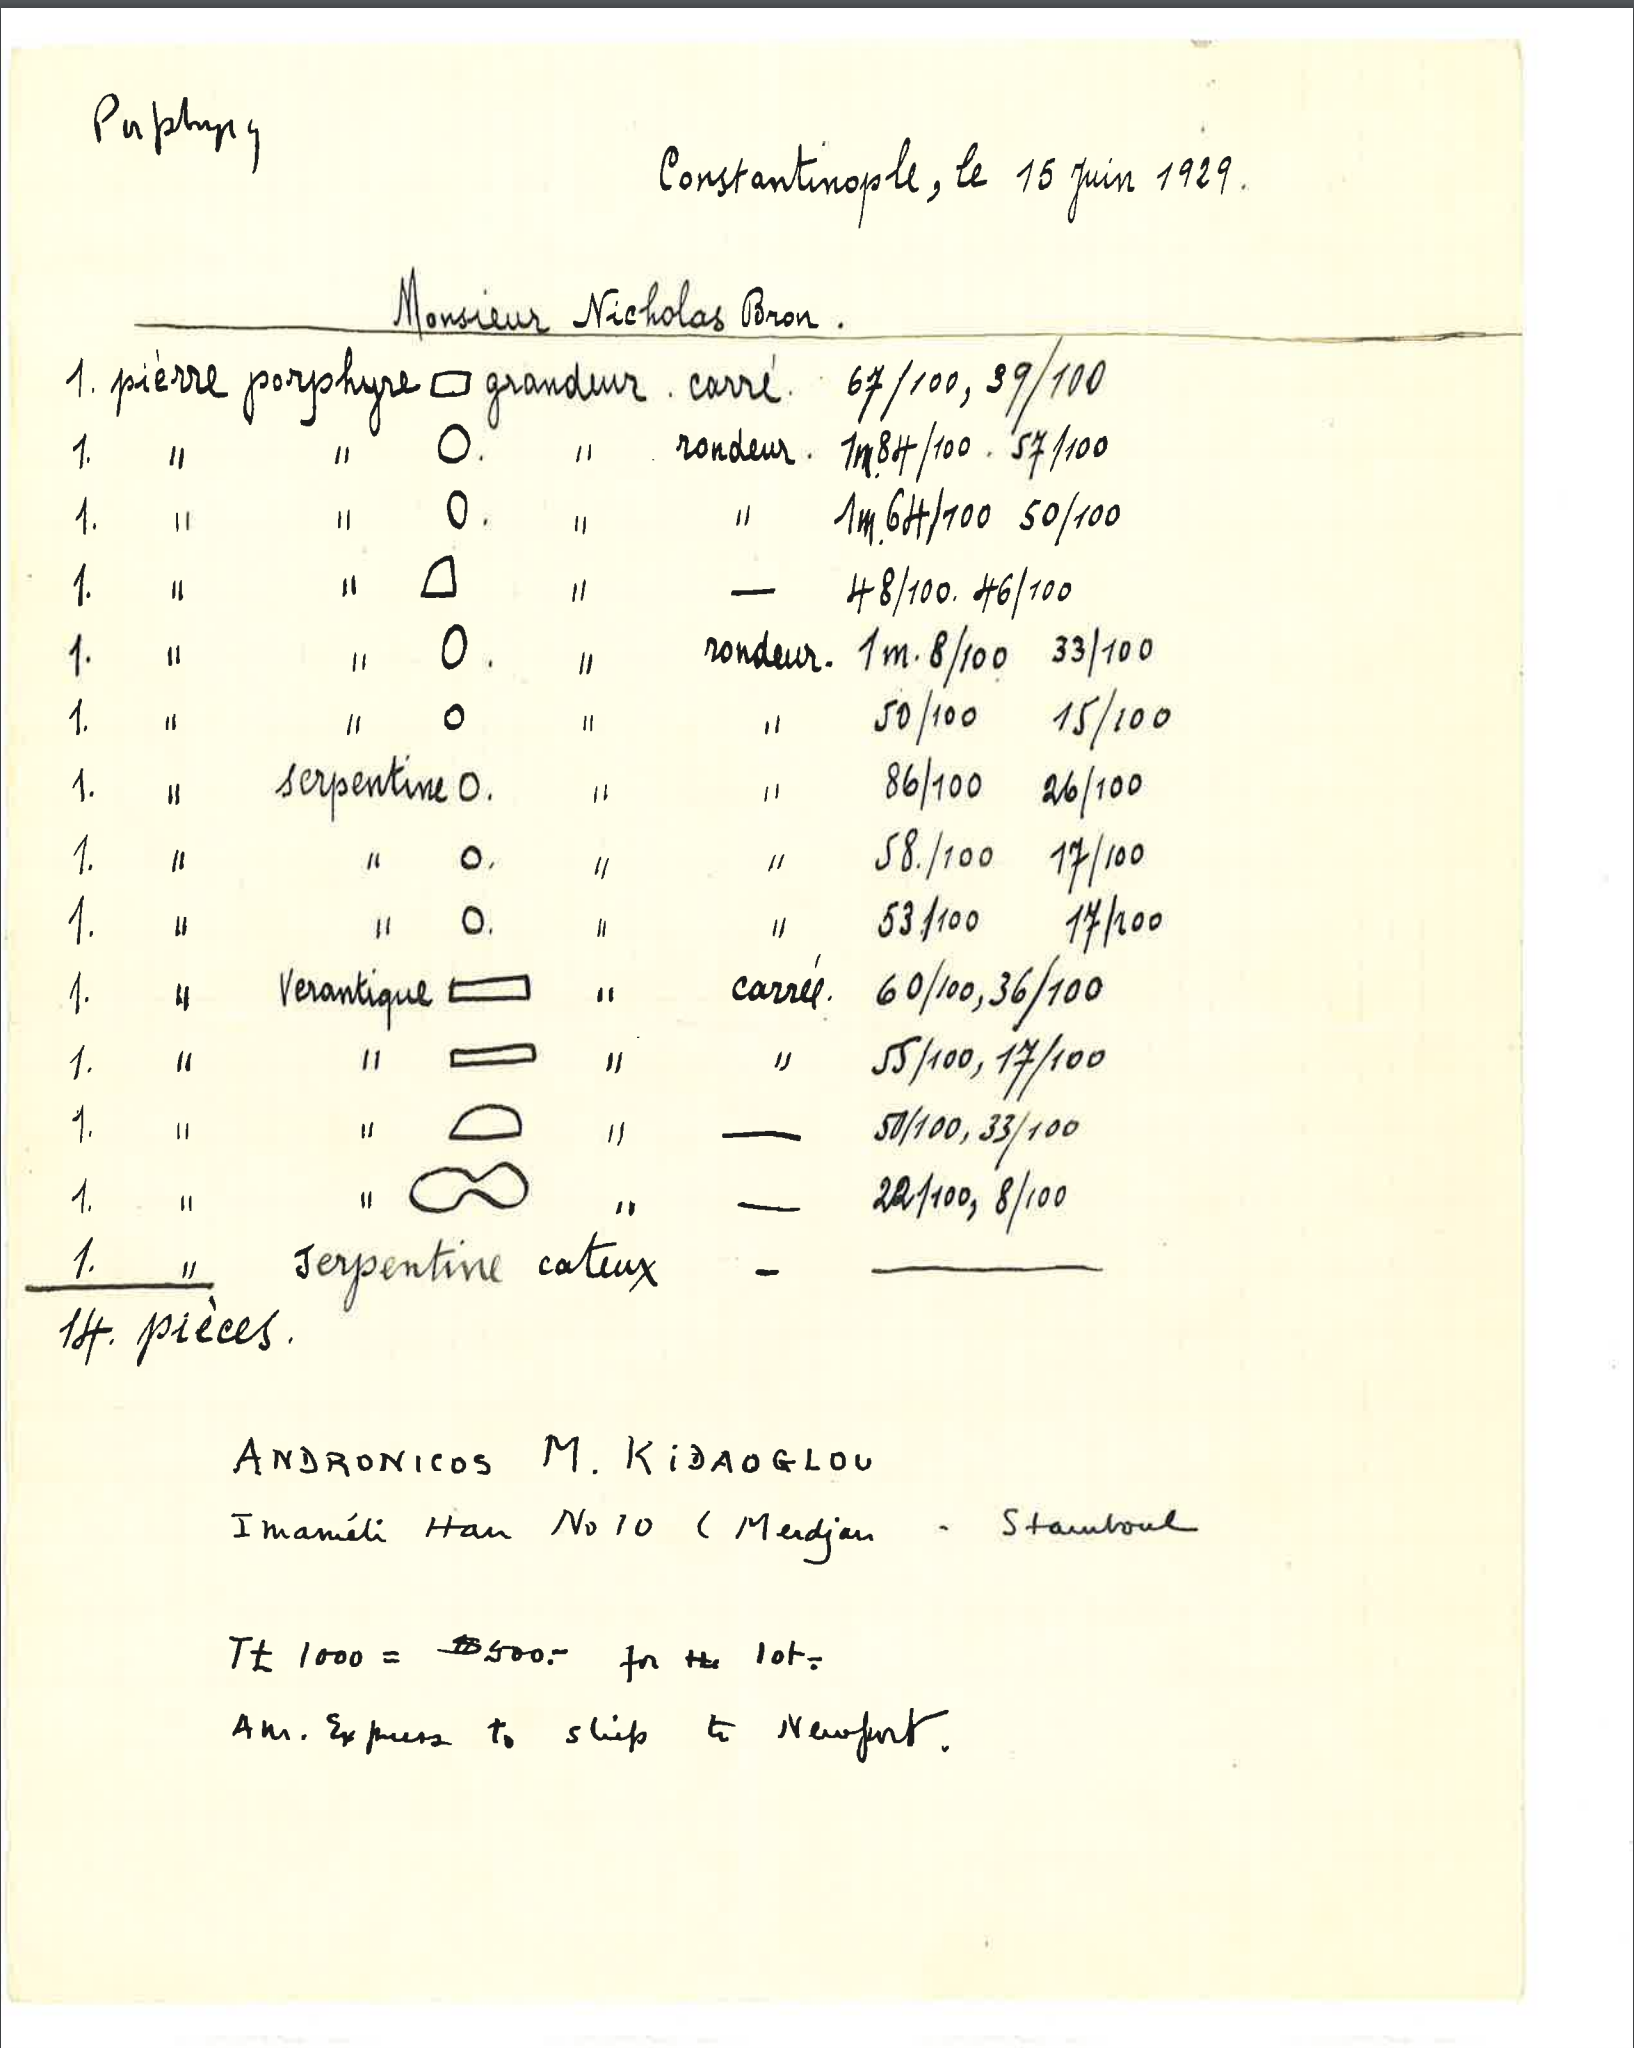 Porphyry
Constantinople, le 15 Juin 1929.
Monsieur Nicholas Bron.
1. pièrre porphyre grandeur. carré. 67/100, 39/100
1. " " " rondeur. 1m.84/100. 57/100
1. " " " " 1m.64/100 50/100
1. " " " — 48/100. 46/100
1. " " " rondeur. 1m.8/100 33/100
1. " " " " 50/100 15/100
1. " serpentine " " 86/100 26/100
1. " " " " 58./100 17/100
1. " " " " 53/100 17/100
1. " Verantique " carréé. 60/100, 36/100
1. " " " " 55/100, 17/100
1. " " " — 50/100, 33/100
1. " " " — 22/100, 8/100
1. " Serpentine cateux - —
14. pièces.
ANDRONICOS M. KIDAOGLOU
Imaméli Han No 10 ( Merdjan - Stamboul
T£ 1000 = $500.- for the lot.-
Am. Express to ship to Newport.